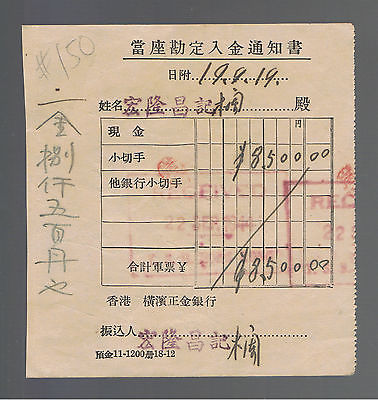 #150
當座勘定入金通知書
日附 19.9.19.
姓名 宏隆昌記 殿
円
現金
小切手 ¥8,500.00
他銀行小切手
合計軍票¥ ¥8,500.00
香港 橫濱正金銀行
振込人 宏隆昌記
預金11-1200册18-12
一金捌仟五百円也
REC
22 SEP
22